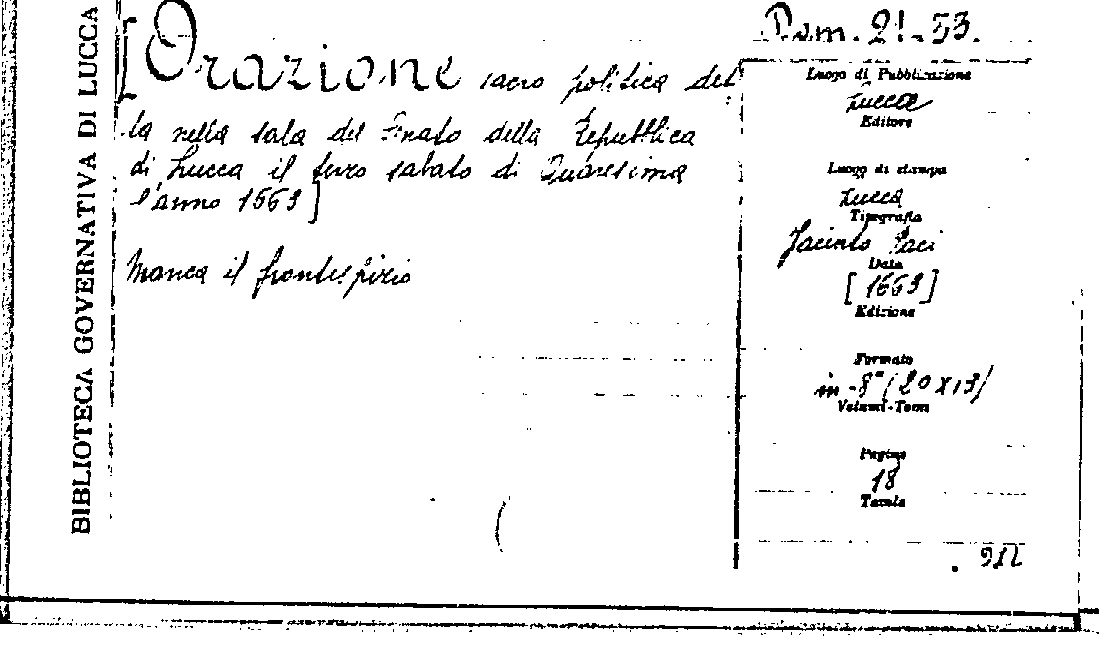 BIBLIOTECA GOVERNATIVA DI LUCCA
[Orazione sacro politica det
ta nella sala del Senato della Repubblica
di Lucca il terzo sabato di Quaresima
l'anno 1663]
Manca il frontespizio
21-53.
Luogo di Pubblicazione
Lucca
Editore
Luogo di stampa
Lucca
Tipografia
Jacinto Paci
Data
[1663]
Edizione
Formato
in-8° (20x13)
Volumi-Tomi
Pagine
18
Tavole